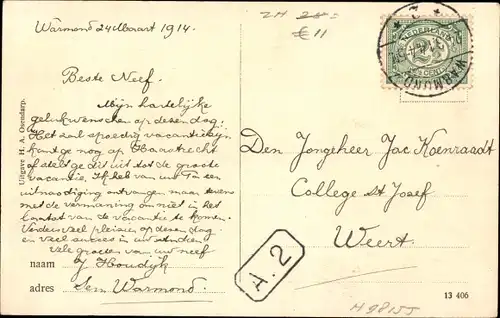 Warmond 24 Maart 1914.
Beste Neef.
Mijn hartelijke
gelukwenschen op dezen dag.
Het zal spoedig vacantie zijn
kunt ge nog op Haastrecht
of stelt ge dit uit tot de groote
vacantie. Ik heb van uw Pa een
uitnoodiging ontvangen maar tevens
met de vermaning om niet in het
laatst van de vacantie te komen.
Verders veel pleizier op dezen dag
en veel succes in uw studien
Vele groeten van uw neef
naam J Houdijk
adres Sem Warmond.
Uitgave H. A. Osendarp.
ZH 28=
€ 11
NEDERLAND
WARMOND
Den Jongeheer Jac Koenraadt
College St. Josef
Weert.
A. 2
H98155
13 406